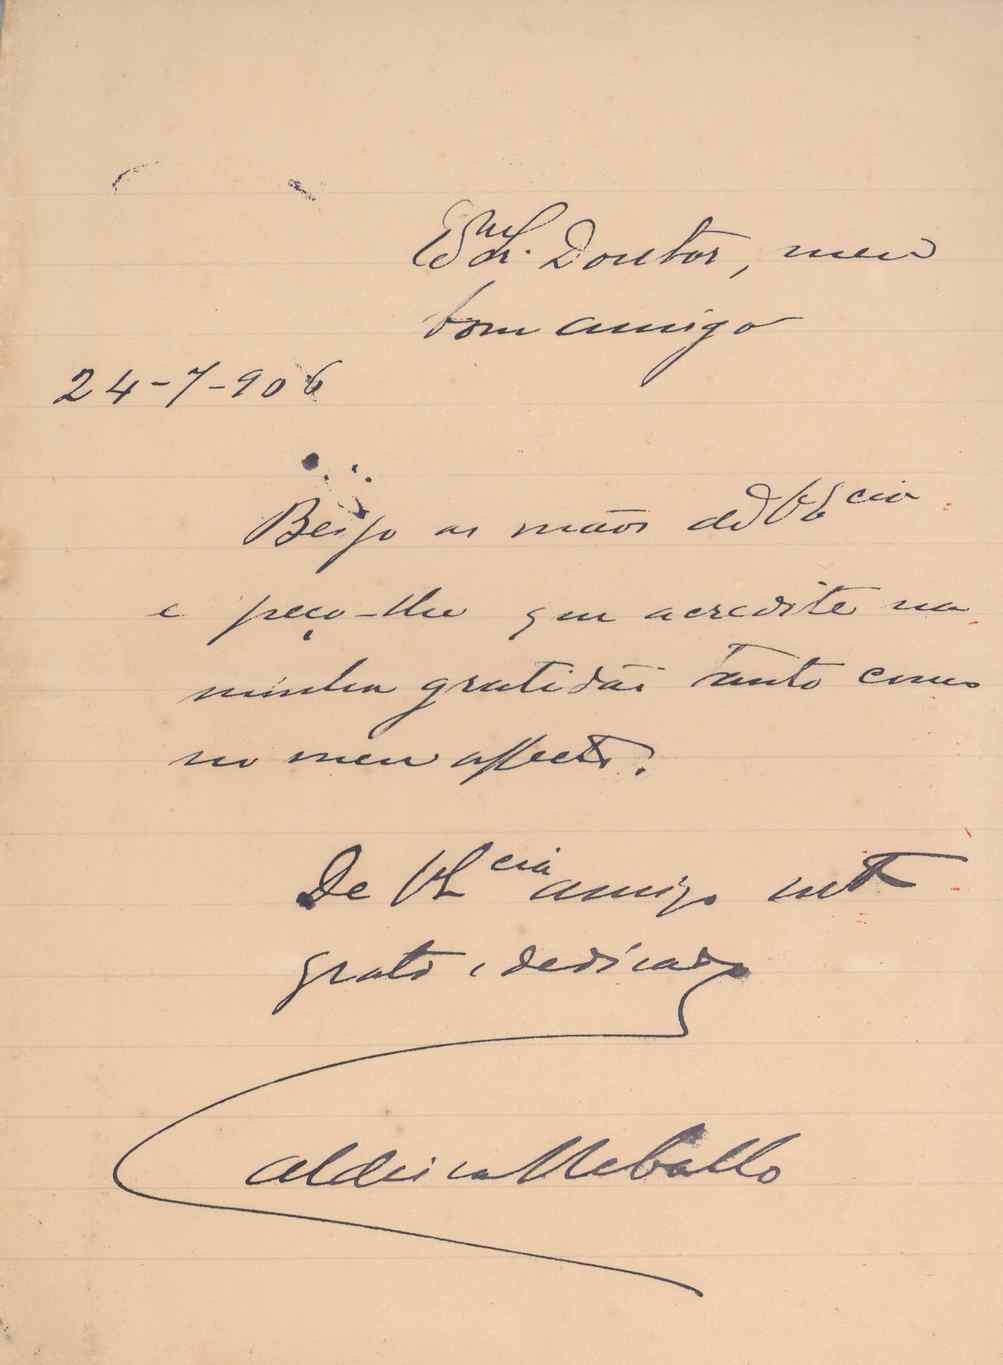 Exmo Sr. Doutor, meu
bom amigo
24-7-906
Beijo as mãos de V. Ecia
e peço-lhe que acredite na
minha gratidão tanto como
no meu affecto.
De V. Ecia amigo mto
grato e dedicado
Caldeira Rebollo